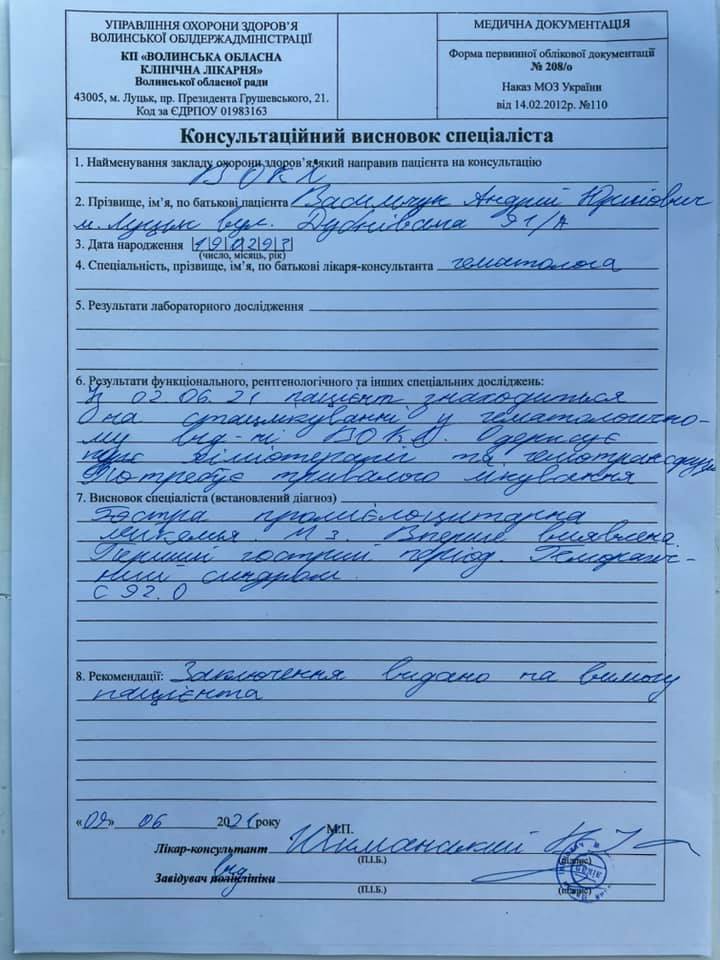 УПРАВЛІННЯ ОХОРОНИ ЗДОРОВ'Я
ВОЛИНСЬКОЇ ОБЛДЕРЖАДМІНІСТРАЦІЇ
КП «ВОЛИНСЬКА ОБЛАСНА
КЛІНІЧНА ЛІКАРНЯ»
Волинської обласної ради
43005, м. Луцьк, пр. Президента Грушевського, 21.
Код за ЄДРПОУ 01983163
МЕДИЧНА ДОКУМЕНТАЦІЯ
Форма первинної облікової документації
№ 208/о
Наказ МОЗ України
від 14.02.2012р. №110
Консультаційний висновок спеціаліста
1. Найменування закладу охорони здоров'я, який направив пацієнта на консультацію
ВОКЛ
2. Прізвище, ім'я, по батькові пацієнта Васильчук Андрій Юрійович
м. Луцьк вул. Дубнівська 91/А
3. Дата народження 190293
(число, місяць, рік)
4. Спеціальність, прізвище, ім'я, по батькові лікаря-консультанта гематолога
5. Результати лабораторного дослідження
6. Результати функціонального, рентгенологічного та інших спеціальних досліджень:
З 02.06.21 пацієнт знаходиться
на стацлікуванні у гематологічно-
му від-ні ВОКЛ. Одержує
курс хіміотерапії та гемотрансфузії
Потребує тривалого лікування
7. Висновок спеціаліста (встановлений діагноз)
Гостра промієлоцитарна
лейкемія. М3. Вперше виявлена.
Перший гострий період. Геморагіч-
ний синдром.
С 92.0
8. Рекомендації: Заключення видано на вимогу
пацієнта
«09» 06 2021 року
М.П.
Лікар-консультант Шиманський
(П.І.Б.) (підпис)
від
Завідувач поліклініки
(П.І.Б.) (підпис)
лікар